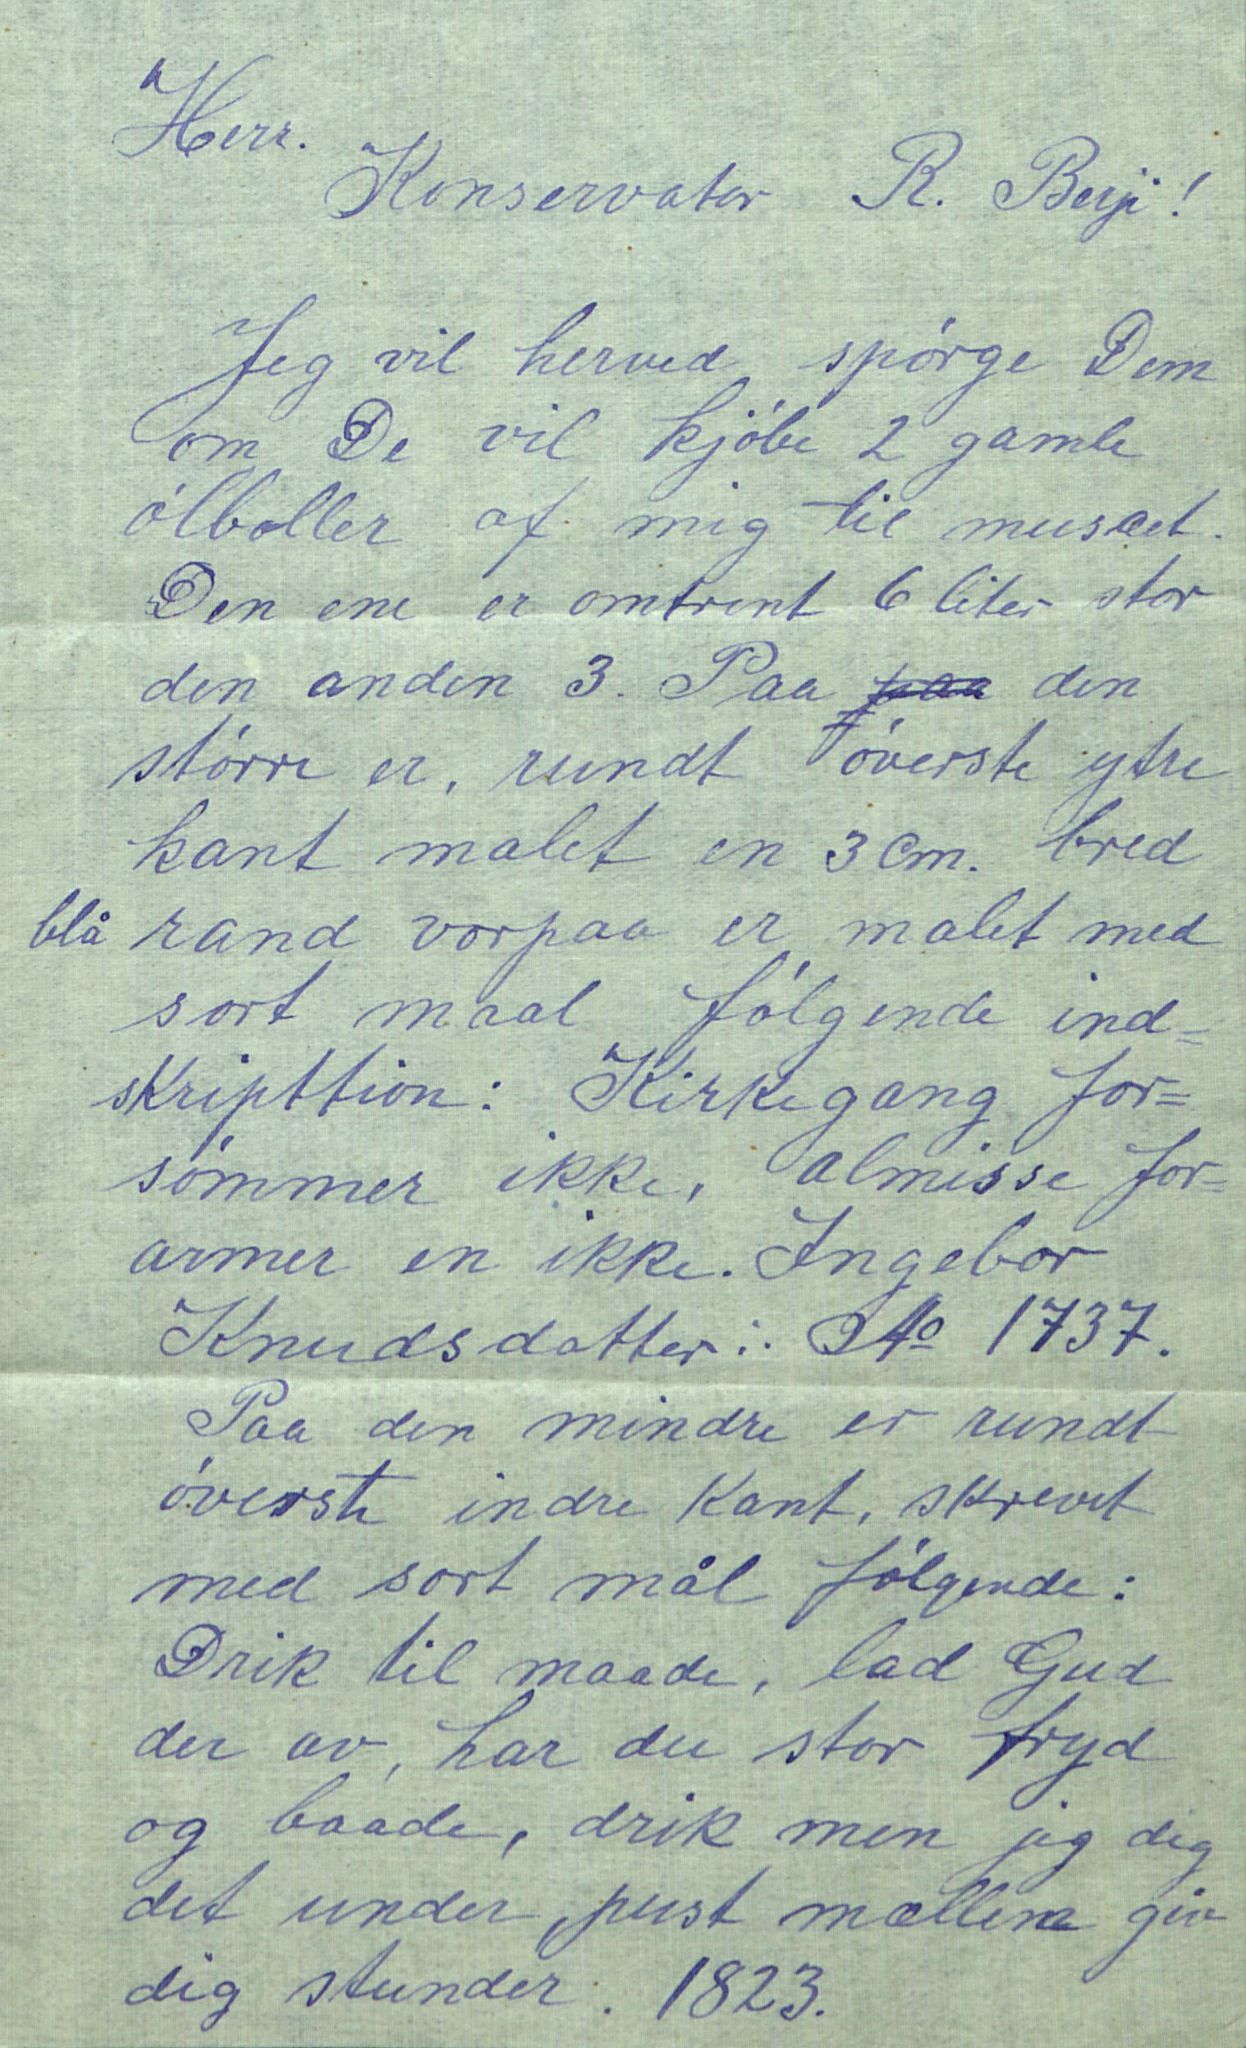 Herr.
Konservator R. Berge!
Jeg vil herved spórge Dem
om De vil kjóbe 2 gamle
ólboller af mig til museet.
Den ene er omtrent 6 liter stor
den anden 3. Paa paa den
större er, rundt óverste ytre
kant malet en 3 cm. bred
blå rand vorpaa er malet med
sort maal fólgende ind=
skripttion: Kirkegang for=
sómmer ikke, almisse for=
armer en ikke. Ingebor
Knudsdatter :. Ao 1737.
Paa den mindre er rundt
óverste indre kant, skrevet
med sort mål fólgende:
Drik til maade, lad Gud
der av, har du stor fryd
og baade, drik men jeg dig
det under, pust mællem giv
dig stunder. 1823.